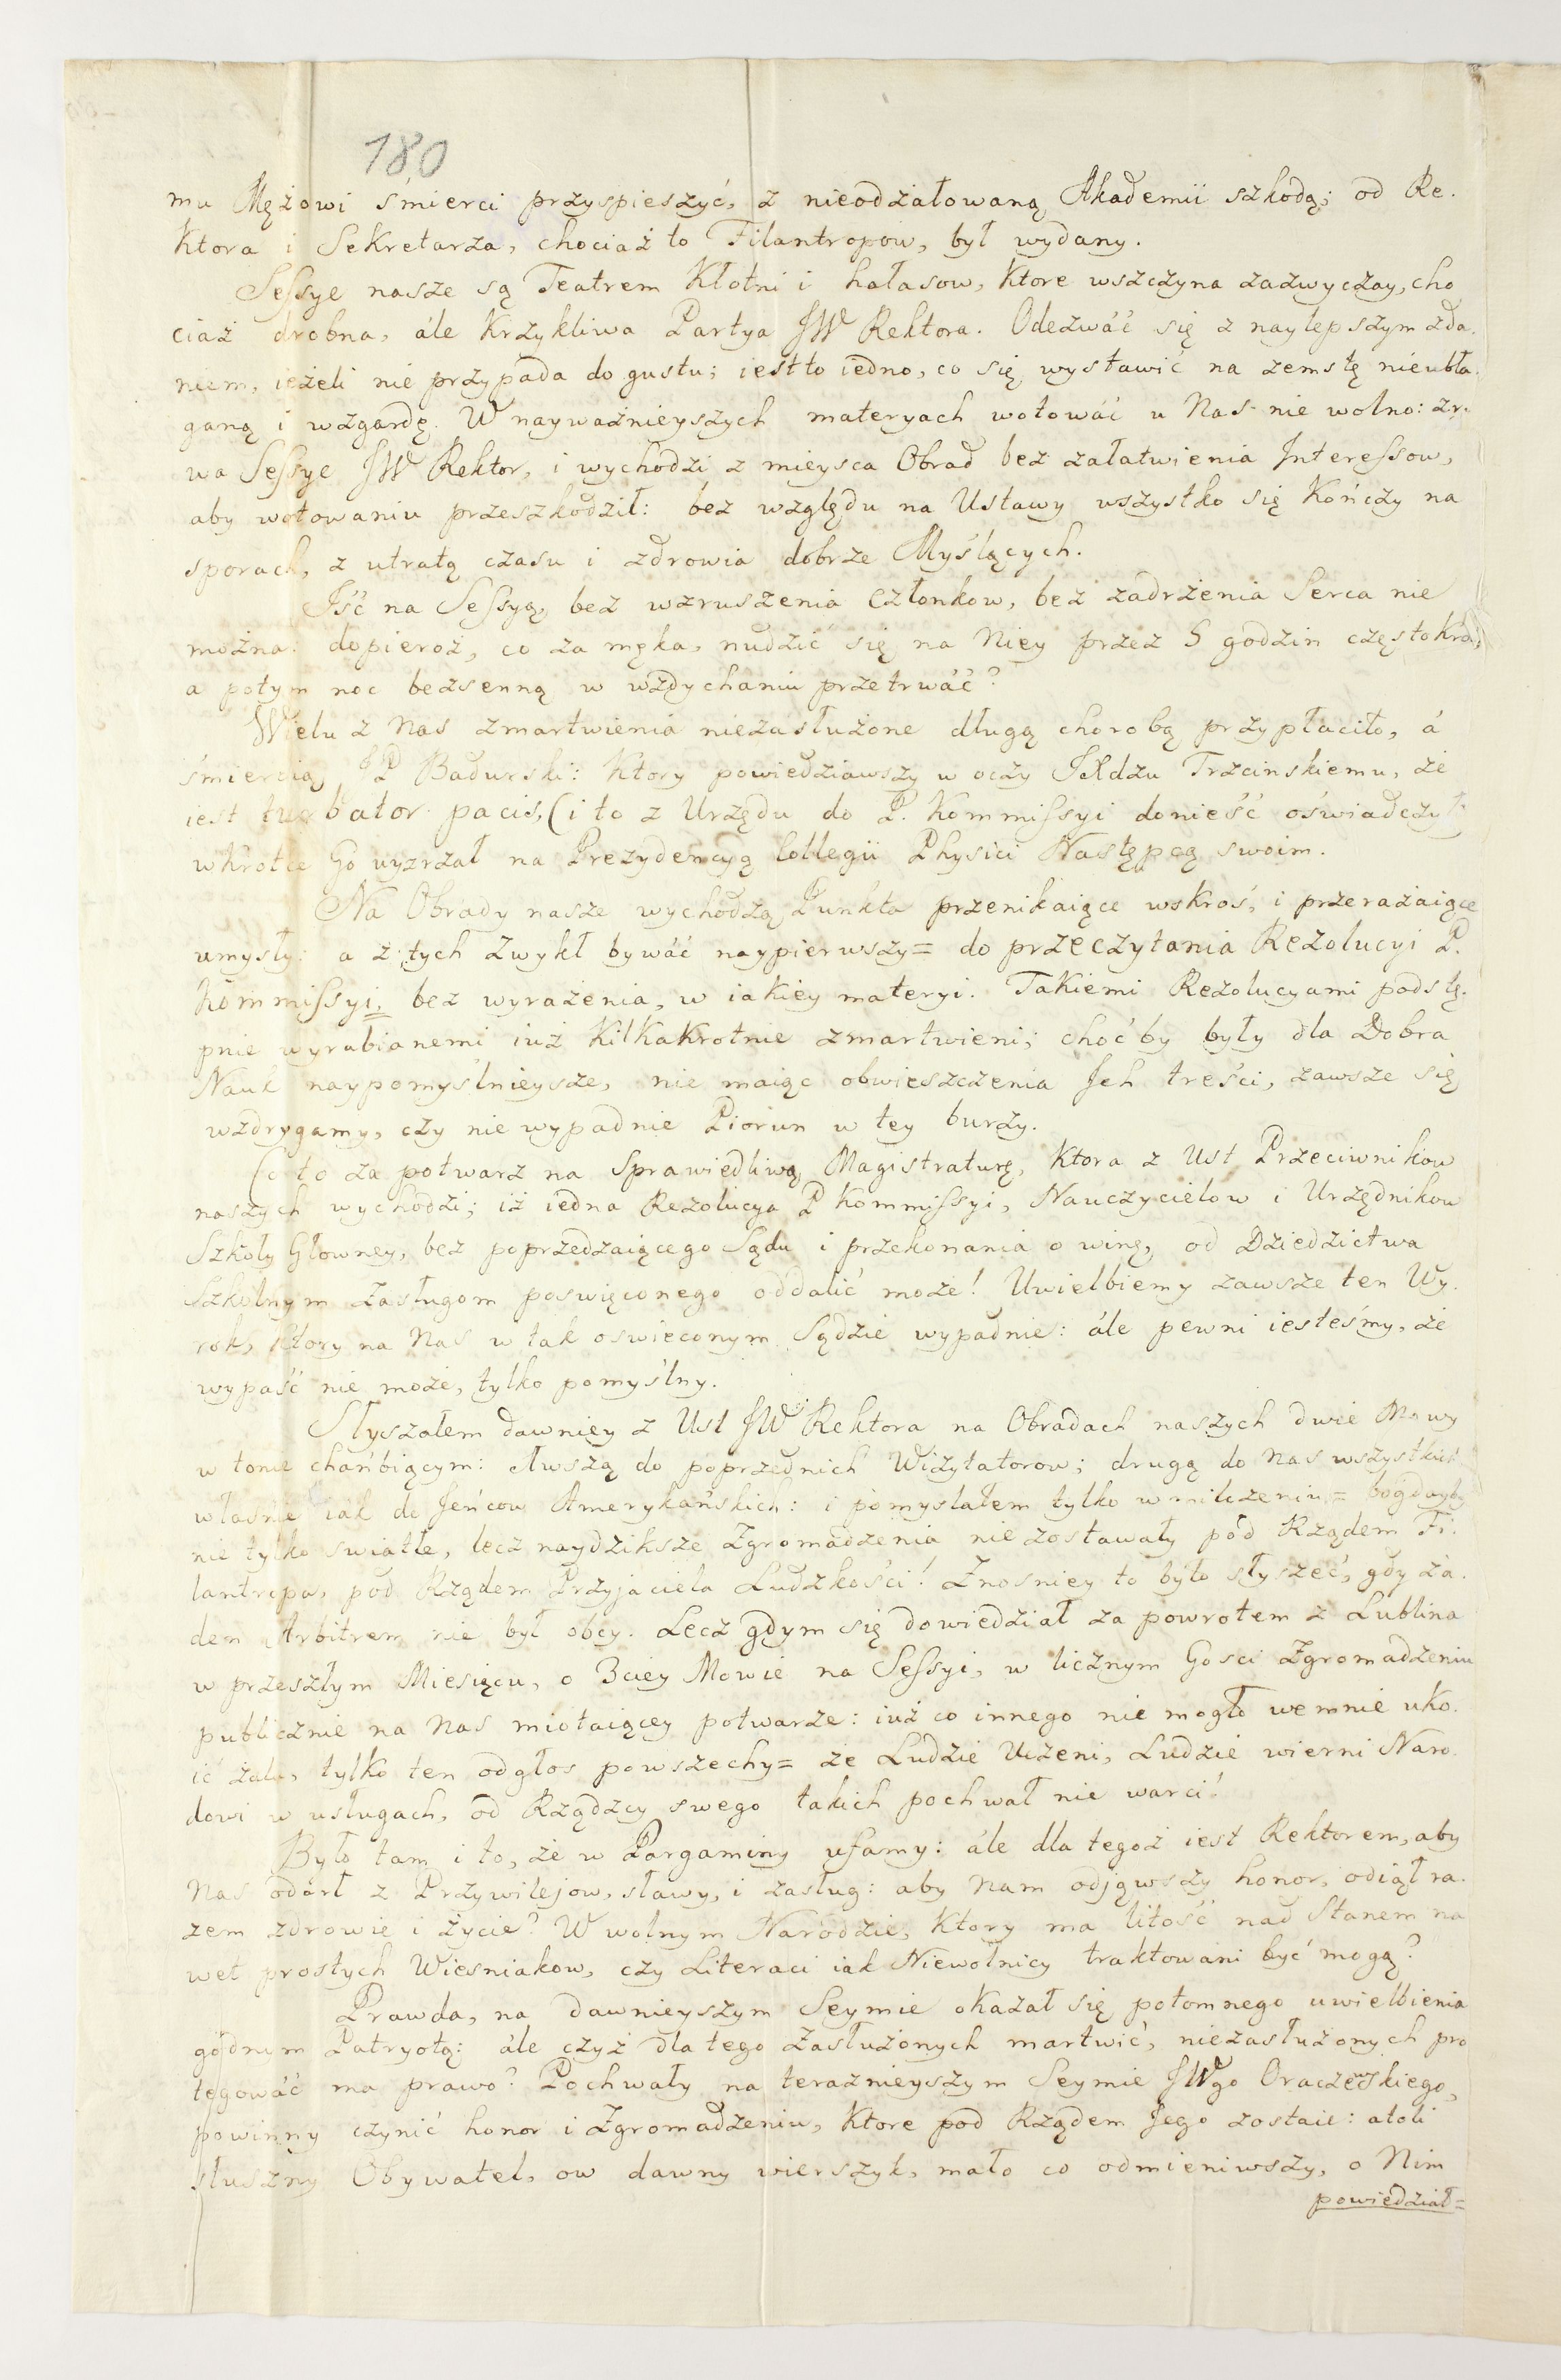 180
mu Mężowi śmierci przyspieszyć, z nieodżałowaną Akademii szkodą; od Re-
ktora i Sekretarza, chociaż to Filantropow, był wydany.
Sessye nasze są Teatrem Kłotni i hałasow, Ktore wszczyna zazwyczay, cho
ciaż drobna, ále Krzykliwa Partya JW Rektora. Odezwáć się z naylepszym zda-
niem, ieżeli nie przypada do gustu; iest to iedno, co się wystawić na zemstę nieubła-
ganą i wzgardę. W nayważnieyszych materyach wotowáć u Nas nie wolno: zry-
wa Sessye JW Rektor, i wychodzi z mieysca Obrad bez załatwienia Interessow,
aby wotowaniu przeszkodził: bez względu na Ustawy wszystko się Kończy na
sporach, z utratą czasu i zdrowia dobrze Myślących.
Iść na Sessyą, bez wzruszenia Członkow, bez zadrżenia Serca nie
można: dopieroż, co za męka, nudzić się na Niey przez 5 godzin częstokroć,
a potym noc bezsenną w wzdychaniu przetrwáć?
Wielu z Nas zmartwienia niezasłużone długą chorobą przypłaciło, á
śmiercią JP Badurski: Ktory powiedziawszy w oczy JXdzu Trzcinskiemu, że
iest turbator pacis, (i to z Urzędu do P. Kommissyi donieść oświadczył
wkrotce Go uyzrzał na Prezydencyą Collegii Physici Następcą swoim.
Na Obrady nasze wychodzą Punkta przenikaiące wskroś, i przerażaiące
umysły: a z tych zwykł bywáć naypierwszy= do przeczytania Rezolucyi P.
Kommissyi, bez wyrażenia, w iakiey materyi. Takiemi Rezolucyami podstę-
pnie wyrabianemi iuż Kilkakrotnie zmartwieni; choćby były dla Dobra
Nauk naypomyślnieysze, nie maiąc obwieszczenia Ich treści, zawsze się
wzdrygamy, czy nie wypadnie Piorun w tey burzy.
Co to za potwarz na Sprawiedliwą Magistraturę, Ktora z Ust Przeciwnikow
naszych wychodzi; iż iedna Rezolucya P Kommissyi, Nauczycielow i Urzędnikow
Szkoły Głowney, bez poprzedzaiącego Sądu i przekonania o winę, od Dziedzictwa
Szkolnym zasługom poswięconego oddalić może! Uwielbiemy zawsze ten Wy-
rok, Ktory na Nas w tak oswieconym Sądzie wypadnie: ále pewni iesteśmy, że
wypaść nie może, tylko pomyślny.
Słyszałem dawniey z Ust JW Rektora na Obradach naszych dwie Mowy
w tonie chańbiącym: 1wszą do poprzednich Wizytatorow; drugą do Nas wszystkich
własnie iak do Jeńcow Amerykańskich: i pomyslałem tylko w milczeniu= bogdayby
nie tylko swiatłe, lecz naydziksze Zgromadzenia nie zostawały pod Rządem Fi-
lantropa, pod Rządem Przyjaciela Ludzkości! Znosniey to było słyszeć, gdy ża-
den Arbitrem nie był obcy. Lecz gdym się dowiedział za powrotem z Lublina
w przeszłym Miesiącu, o 3ciey Mowie na Sessyi, w licznym Gosci Zgromadzeniu
publicznie na Nas miotaiącey potwarze: iuż co innego nie mogło wemnie uko-
ić żalu, tylko ten odgłos powszechy= że Ludzie Uczeni, Ludzie wierni Naro-
dowi w usługach, od Rządzcy swego takich pochwał nie warci!
Było tam i to, że w Pargaminy ufamy: ále dla tegoż iest Rektorem, aby
Nas odárł z Przywilejow, sławy, i zasług: aby Nam odjąwszy honor, odiął ra-
zem zdrowie i życie? W wolnym Narodzie, Ktory ma litość nad Stanem na
wet prostych Wiesniakow, czy Literaci iak Niewolnicy traktowani być mogą?
Prawda, na dawnieyszym Seymie okazał się potomnego uwielbienia
godnym Patryotą; ále czyż dla tego zasłużonych martwić, niezasłużonych pro
tegowáć ma prawo? Pochwały na terażnieyszym Seymie JWgo Oraczewskiego,
powinny czynić honor i Zgromadzeniu, Ktore pod Rządem Jego zostaie: atoli
słuszny Obywatel, ow dawny wierszyk, mało co odmieniwszy, o Nim
powiedział=